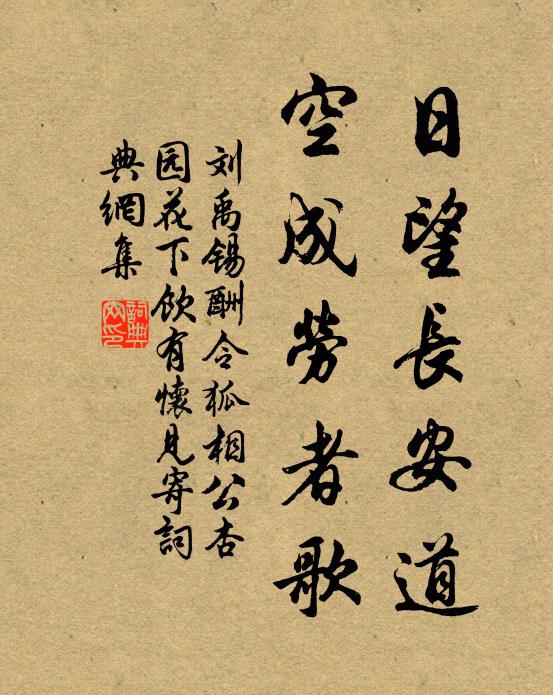 日望长安道
空成劳者歌
刘禹锡酬令狐相公杏
园花下饮有怀见寄词
典網集
詞典
网印